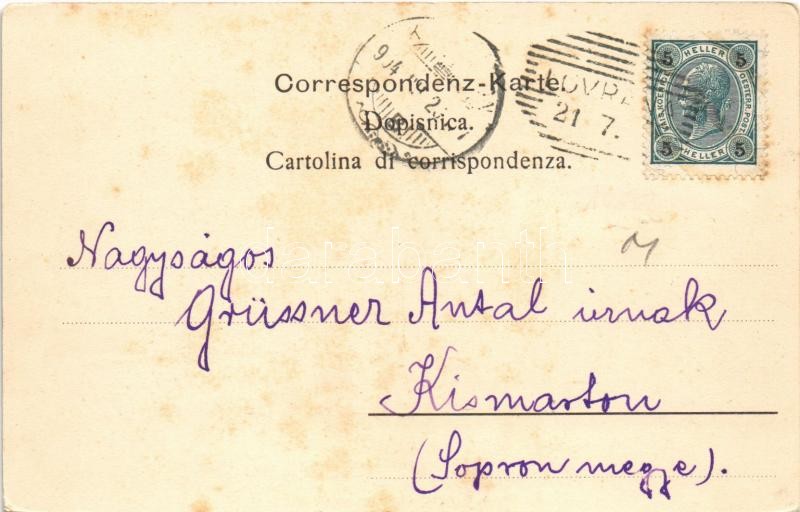 Correspondenz-Karte.
Dopisnica.
Cartolina di corrispondenza.
LOVRA
21 7.
904
5 HELLER 5
KAIS. KOENIGL. OESTERR. POST.
5 HELLER 5
Nagyságos
Grüssner Antal úrnak
Kismarton
(Sopron megye).
darabanth